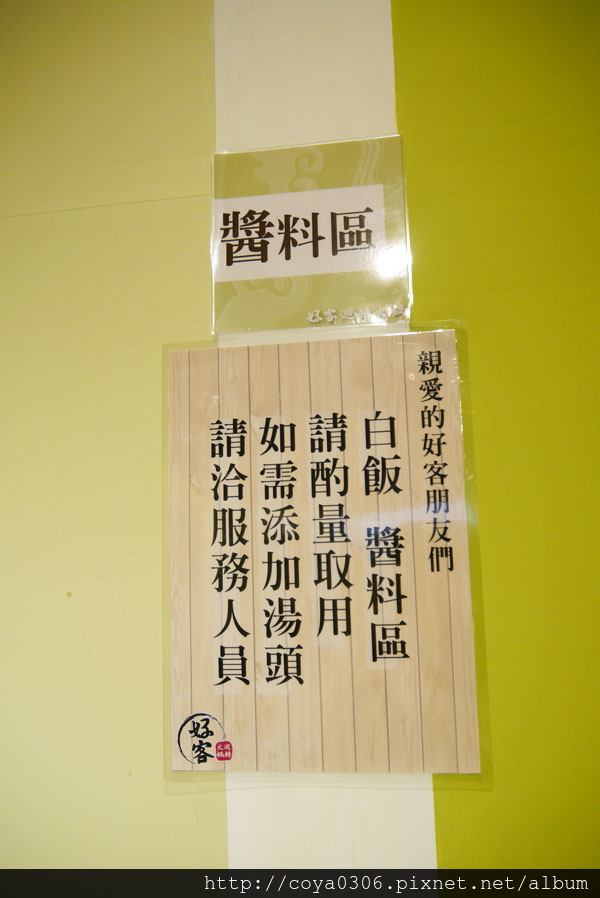 醬料區
親愛的好客朋友們
白飯 醬料區
請酌量取用
如需添加湯頭
請洽服務人員
好客
http://coya0306.pixnet.net/album